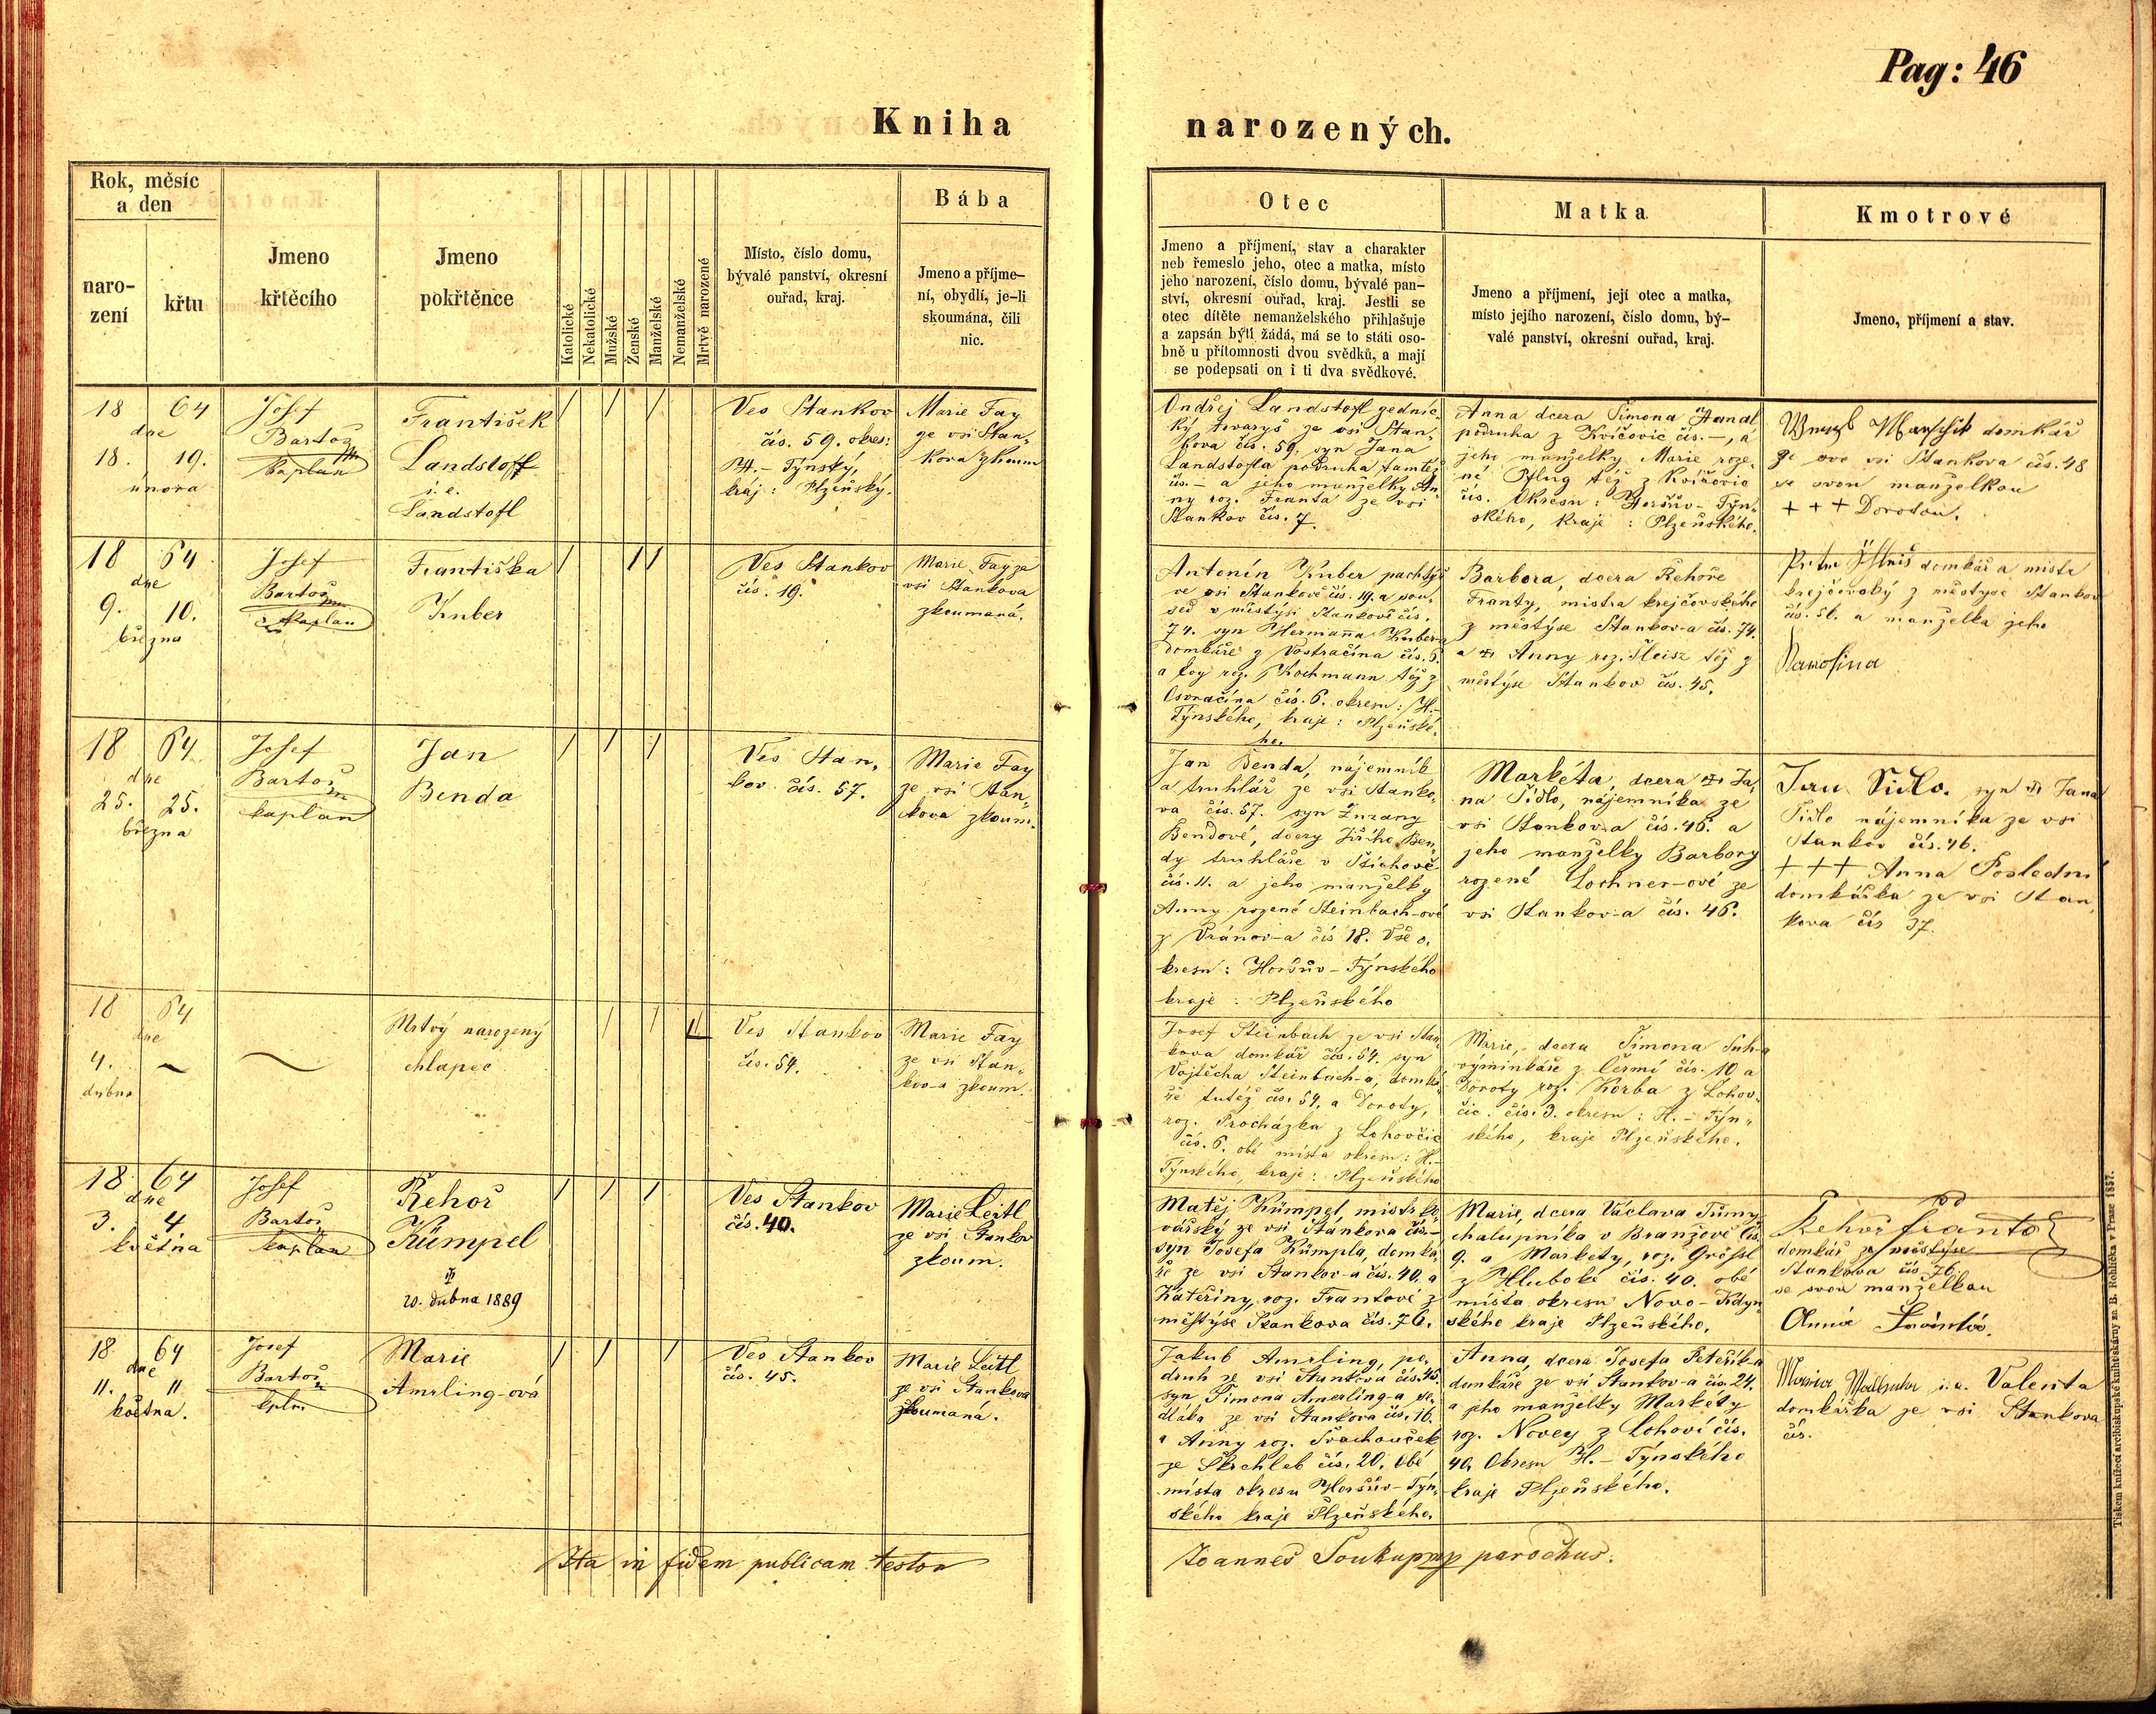 Pag: 46
Kniha narozených.
Rok, měsíc
a den
naro-
zení
křtu
Jmeno
křtěcího
Jmeno
pokřtěnce
Katolické
Nekatolické
Mužské
Ženské
Manželské
Nemanželské
Mrtvě narozené
Místo, číslo domu,
bývalé panství, okresní
ouřad, kraj.
Bába
Jmeno a příjme-
ní, obydlí, je-li
skoumána, čili
nic.
Otec
Jmeno a příjmení, stav a charakter
neb řemeslo jeho, otec a matka, místo
jeho narození, číslo domu, bývalé pan-
ství, okresní ouřad, kraj. Jestli se
otec dítěte nemanželského přihlašuje
a zapsán býti žádá, má se to státi oso-
bně u přítomnosti dvou svědků, a mají
se podepsati on i ti dva svědkové.
Matka
Jmeno a příjmení, její otec a matka,
místo jejího narození, číslo domu, bý-
valé panství, okresní ouřad, kraj.
Kmotrové
Jmeno, příjmení a stav.
18 64
dne
18. 19.
února
Josef
Bartoš
kaplan
František
Landstoff
i. e.
Landstofl
/ / /
Ves Stankov
čís. 59. okres:
H.- Týnský,
kráj: Plzeňský.
Marie Fay
ze vsi Stan-
kova zkoum
Ondřej Landstofl zednic-
ký tovaryš ze vsi Stan-
kova čís. 59. syn Jana
Landstofla podruha tamtéž
čís. - a jeho manželky An-
ny roz. Franta ze vsi
Stankov čís. 7.
Anna dcera Šimona Handl
podruha z Kvíčovic čís. -, a
jeho manželky Marie roze-
né Pflug též z Kvíčovic
čís. Okresu: Horšův-Týn-
ského, kraje: Plzeňského.
domkář
ze vsi Stankova čís. 48
se svou manželkou
+ + + Dorotou.
18 64
dne
9. 10.
března
Josef
Bartoš
kaplan
Františka
Kuber
/ / /
Ves Stankov
čís. 19.
Marie Fay ze
vsi Stankova
zkoumaná.
Antonín Kuber pachtýř
ve vsi Stankově čís. 19. a sou-
sed v městýsi Stankově čís.
74. syn Hermanna Kuber-a
domkáře z Vostračína čís. 6.
a roz. Kochmann též z
Osvračína čís. 6. okresu: H.-
Týnského, kraje: Plzeňské-
ho.
Barbora, dcera Řehoře
Franty, mistra krejčovského
z městýse Stankov-a čís. 74.
a Anny roz. Fleisz též z
městýse Stankov čís. 45.
domkář a mistr
krejčovský z městyse Stankov
čís. 51. a manželka jeho
18 64
dne
25. 25.
března
Josef
Bartoš
kaplan
Jan
Benda
/ / /
Ves Stan-
kov čís. 57.
Marie Fay
ze vsi Stan-
kova zkoum.
Jan Benda, nájemník
a truhlář ze vsi Stanko-
va čís. 57. syn Zuzany
Bendové, dcery Jiřího Ben-
dy truhláře v Štichově
čís. 11. a jeho manželky
Anny rozené Steinbach-ové
z Vránov-a čís 18. Vše o-
kresu: Horšův-Týnského
kraje: Plzeňského
Markéta, dcera Ja-
na Šidlo, nájemníka ze
vsi Stankov-a čís. 46. a
jeho manželky Barbory
rozené Lochner-ové ze
vsi Stankov-a čís. 46.
Jan Šidlo. syn Jana
Šidlo nájemníka ze vsi
Stankov čís. 46.
+ + + Anna Poslední
domkářka ze vsi Stan-
kova čís 37.
18 64
dne
4. ~
dubna
~
Mrtvý narozený
chlapec
/ / /
Ves Stankov
čís. 54.
Marie Fay
ze vsi Stan-
kov-a zkoum.
Josef Steinbach ze vsi Stan-
kova domkář čís. 54. syn
Vojtěcha Steinbach-a, domká-
ře tutéž čís. 54. a Doroty,
roz. Procházka z Lohovčic
čís. 6. obě místa okresu: H.-
Týnského, kraje: Plzeňského
Marie, dcera Šimona
výminkáře z Čermí čís. 10 a
Doroty roz. Korba z Lohov-
čic. čís. 3. okresu: H.- Týn-
ského, kraje Plzeňského.
18 64
dne
3. 4
května
Josef
Bartoš
kaplan
Řehoř
Kümpel
20. dubna 1889
/ / /
Ves Stankov
čís. 40.
Marie Leitl
ze vsi Stankov
zkoum.
Matěj Kümpel, mistr ko-
vářský ze vsi Stankova čís.-
syn Josefa Kümpla, domká-
ře ze vsi Stankov-a čís. 40. a
Kateřiny, roz. Frantové z
městýse Stankova čís. 76.
Marie, dcera Václava Tůmy
chalupníka v Branžově čís.
9. a Markety, roz. Grössl
z Hluboké čís. 40. obě
místa okresu Novo-Kdyn-
ského kraje Plzeňského.
Řehoř Franta
domkář ze městýse
Stankova čís 76.
se svou manželkou
18 64
dne
11. 11
května.
Josef
Bartoš
kpln.
Marie
Amrling-ová
/ / /
Ves Stankov
čís. 45.
Marie Leitl
ze vsi Stankova
zkoumaná.
Jakub Amrling, po-
druh ze vsi Stankova čís. 45.
syn Šimona Amerling-a se-
dláka ze vsi Stankova čís. 16.
a Anny roz. Svachouček
ze Škrchleb čís. 20. Obě
místa okresu Horšův-Týn-
ského kraje Plzeňského.
Anna, dcera Josefa Peteřík-a
domkáře ze vsi Stankov-a čís. 24.
a jeho manželky Markéty
roz. Novey z Lohoví čís.
40. Okresu H.- Týnského
kraje Plzeňského.
i. e. Valenta
domkářka ze vsi Stankova
čís.
Ita in fidem publicam testor Joannes Soukup mp parochus.
Tiskem knížecí arcibiskupské knihtiskárny za B. Rohlíčka v Praze 1857.